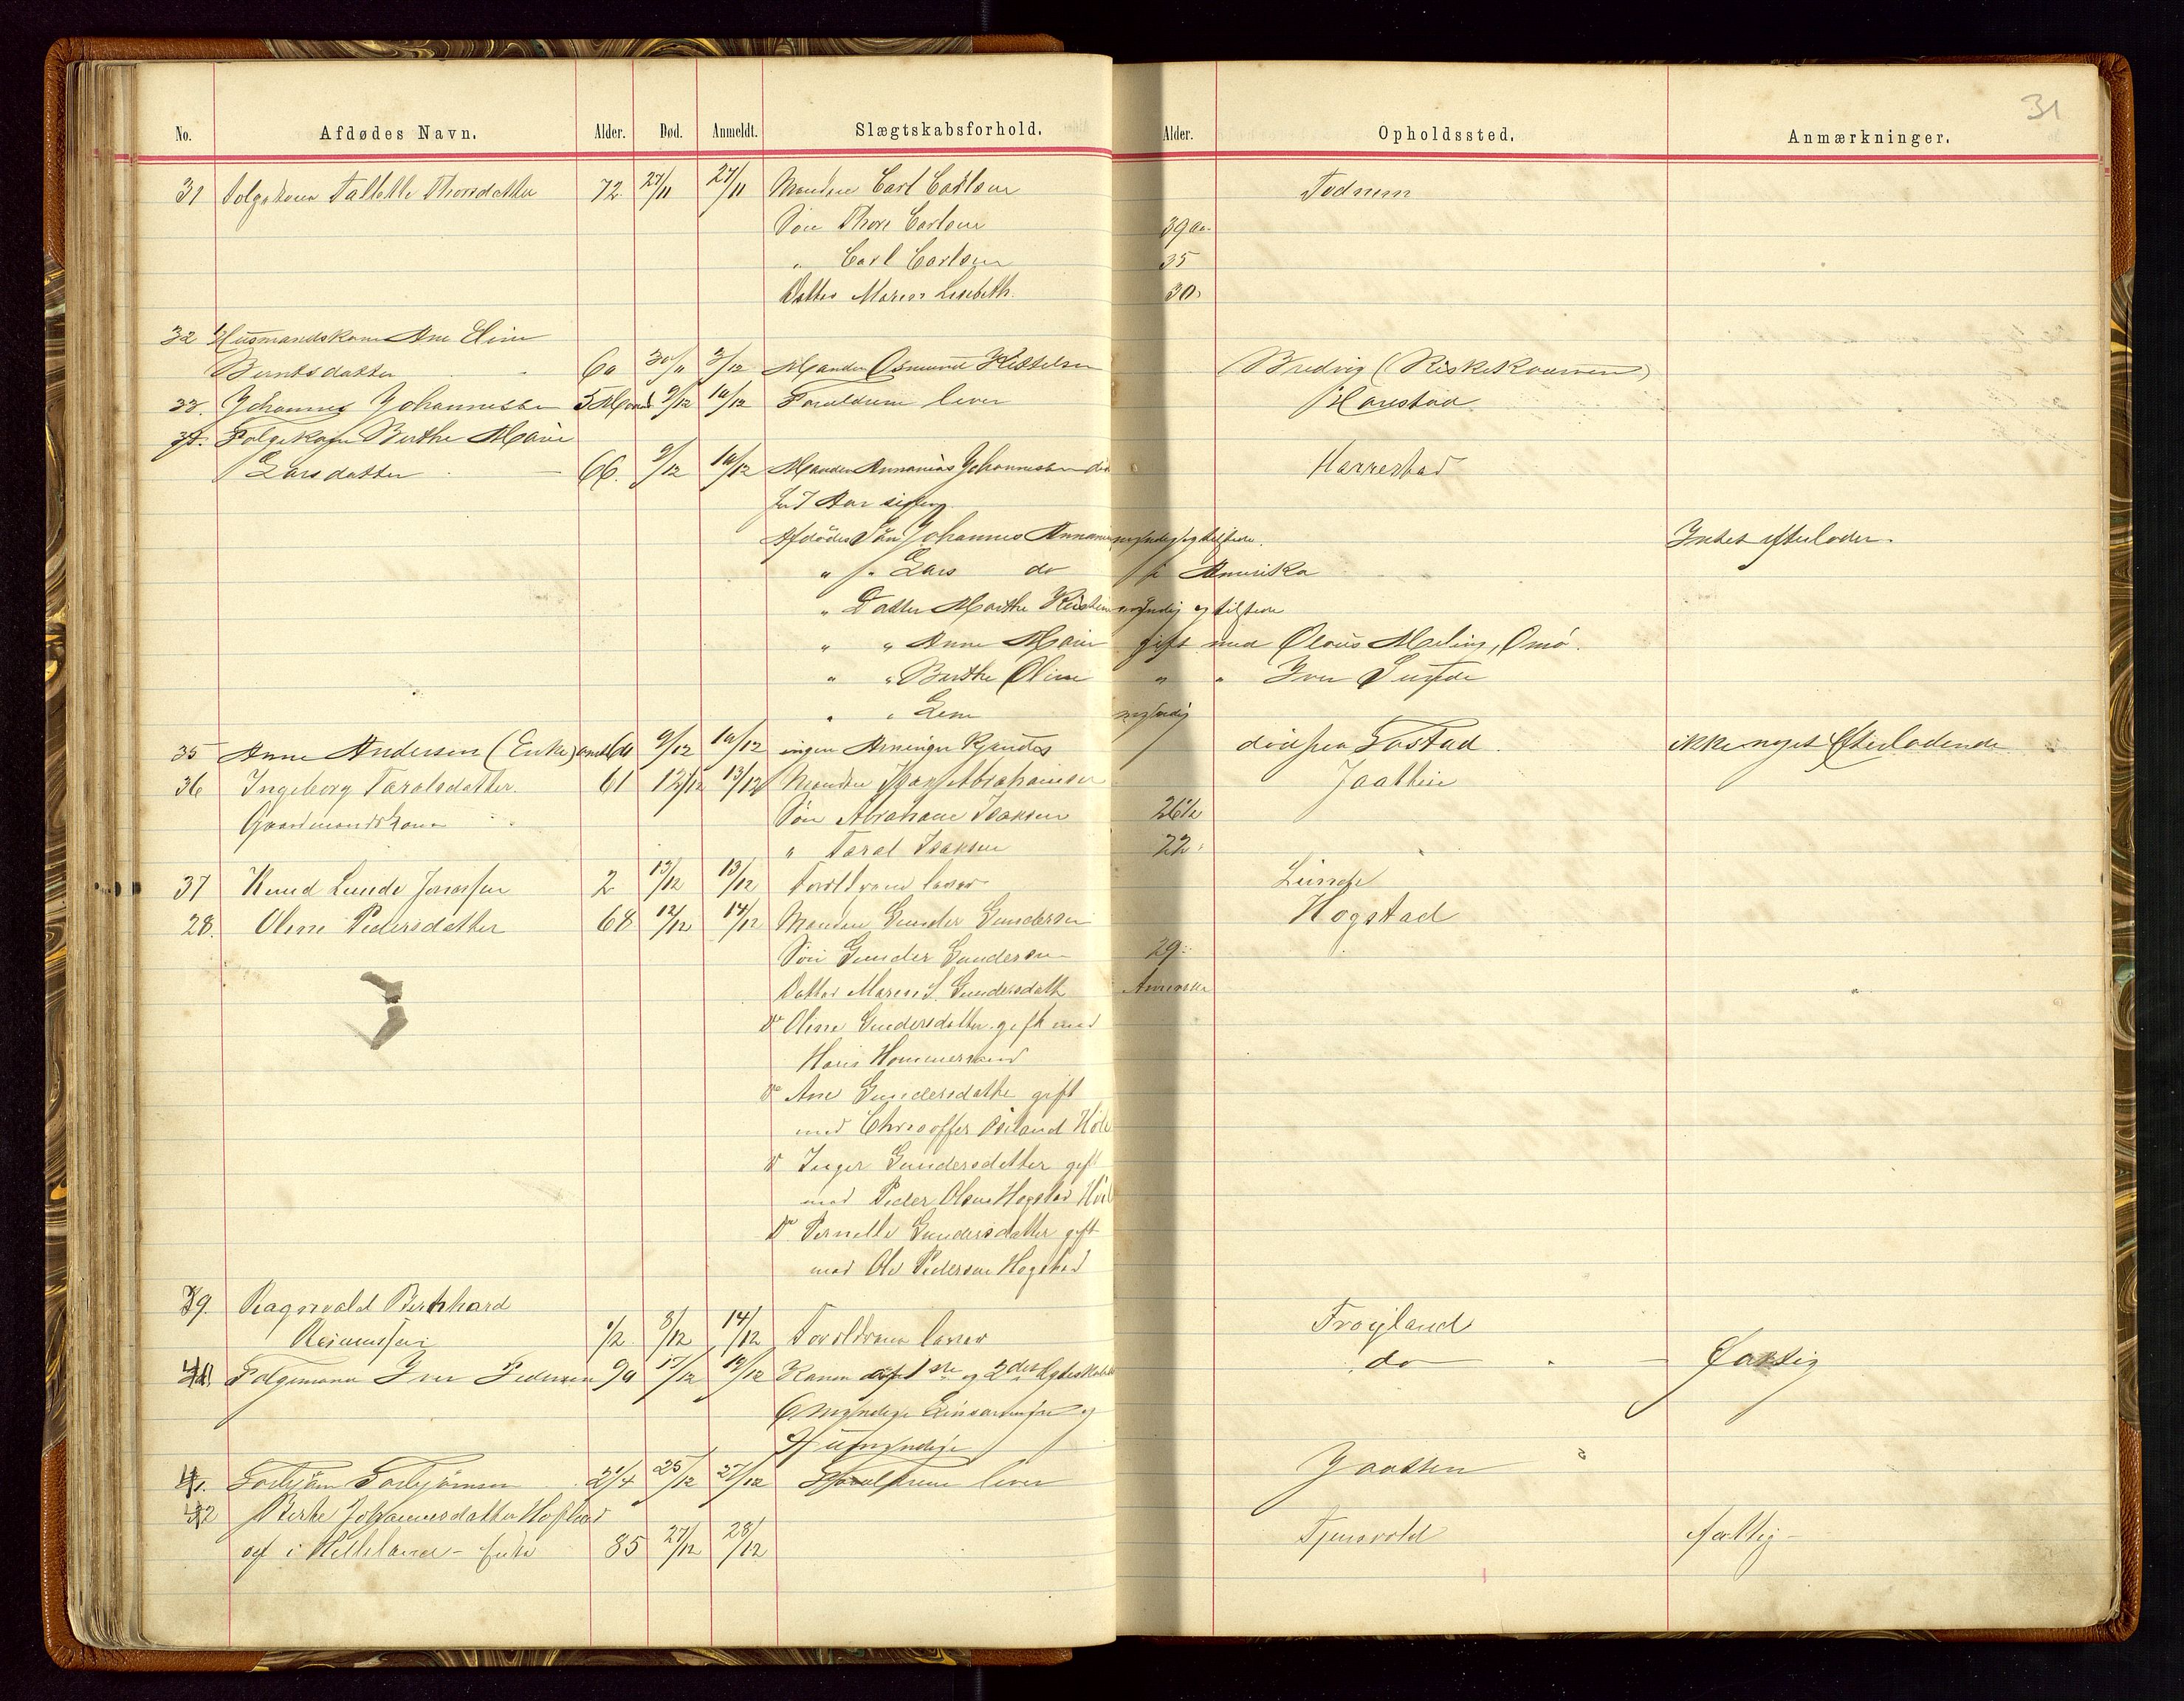 31
No. Afdødes Navn. Alder. Død. Anmeldt. Slægtskabsforhold. Alder. Opholdssted. Anmærkninger.
31 Folgekone Thorsdatter 72 27/11 27/11 Manden Carl Carlsen Todnem
Søn Thore Carlsen 39 Aar
" Carl Carlsen 35
Datter Maren Lisebeth 30
32 Husmandskone Ane Eline
Berntsdatter 60 30/11 3/12 Manden Osmund Kittelsen Bredvig (
33. Johannes Johannessen 5 Mond 9/12 10/12 Foreldrene lever Harestad
34. Folgekone Berthe Marie
Larsdatter 66. 9/12 10/12 Manden Annanias Johannessen død Harrestad
for 7 Aar siden
Afdødes Søn Johannes myndig og tilstede. Intet efterlader.
" " Lars do i Amerika
" Datter Marthe myndig og tilstede
" " Anne Marie gift med Olaus Meling, Omø.
" " Berthe Oline " " Iver
" " Lene myndig
35 Anne Andersen (Enke) omt 60 9/12 10/12 ingen Arvinger kjendes død paa Tastad ikke noget Efterladende
36 Ingeborg Taralsdatter 61 12/12 13/12 Manden Isak Abrahamsen Jaatten
Gaardmandskone Søn Abraham Isaksen 26 1/2
" Taral Isaksen 22
37 Knud Lunde 2 13/12 13/12 Foreldrene lever Lunde
28. Oline Pedersdatter 68 12/12 14/12 Manden Gunder Gundersen Hogstad
Søn Gunder Gundersen 29
Datter Maren S. Gundersdatt Amerika
Do Oline Gundersdatter gift med
Hans Hommersand
Do Ane Gundersdatter gift
med Høle
Do Inger Gundersdatter gift
med Peder Olsen Hogstad Høle
Do Pernille Gundersdatter gift
med Ole Pedersen Hogstad
39. Ragnvald Bernhard
Rasmussen 1/2 8/12 14/12 Foreldrene lever Frøyland
40 Folgemand Iver Pedersen 90 17/12 19/12 Konen af 1ste og 2det do Fattig
6 myndige og
4 umyndige
41. Torbjørn Torbjørnsen 2 1/4 25/12 27/12 Foreldrene lever Jaatten
42 Berte Johannesdatter
i Helleland - Enke 85 27/12 28/12 Tjensvold fattig -